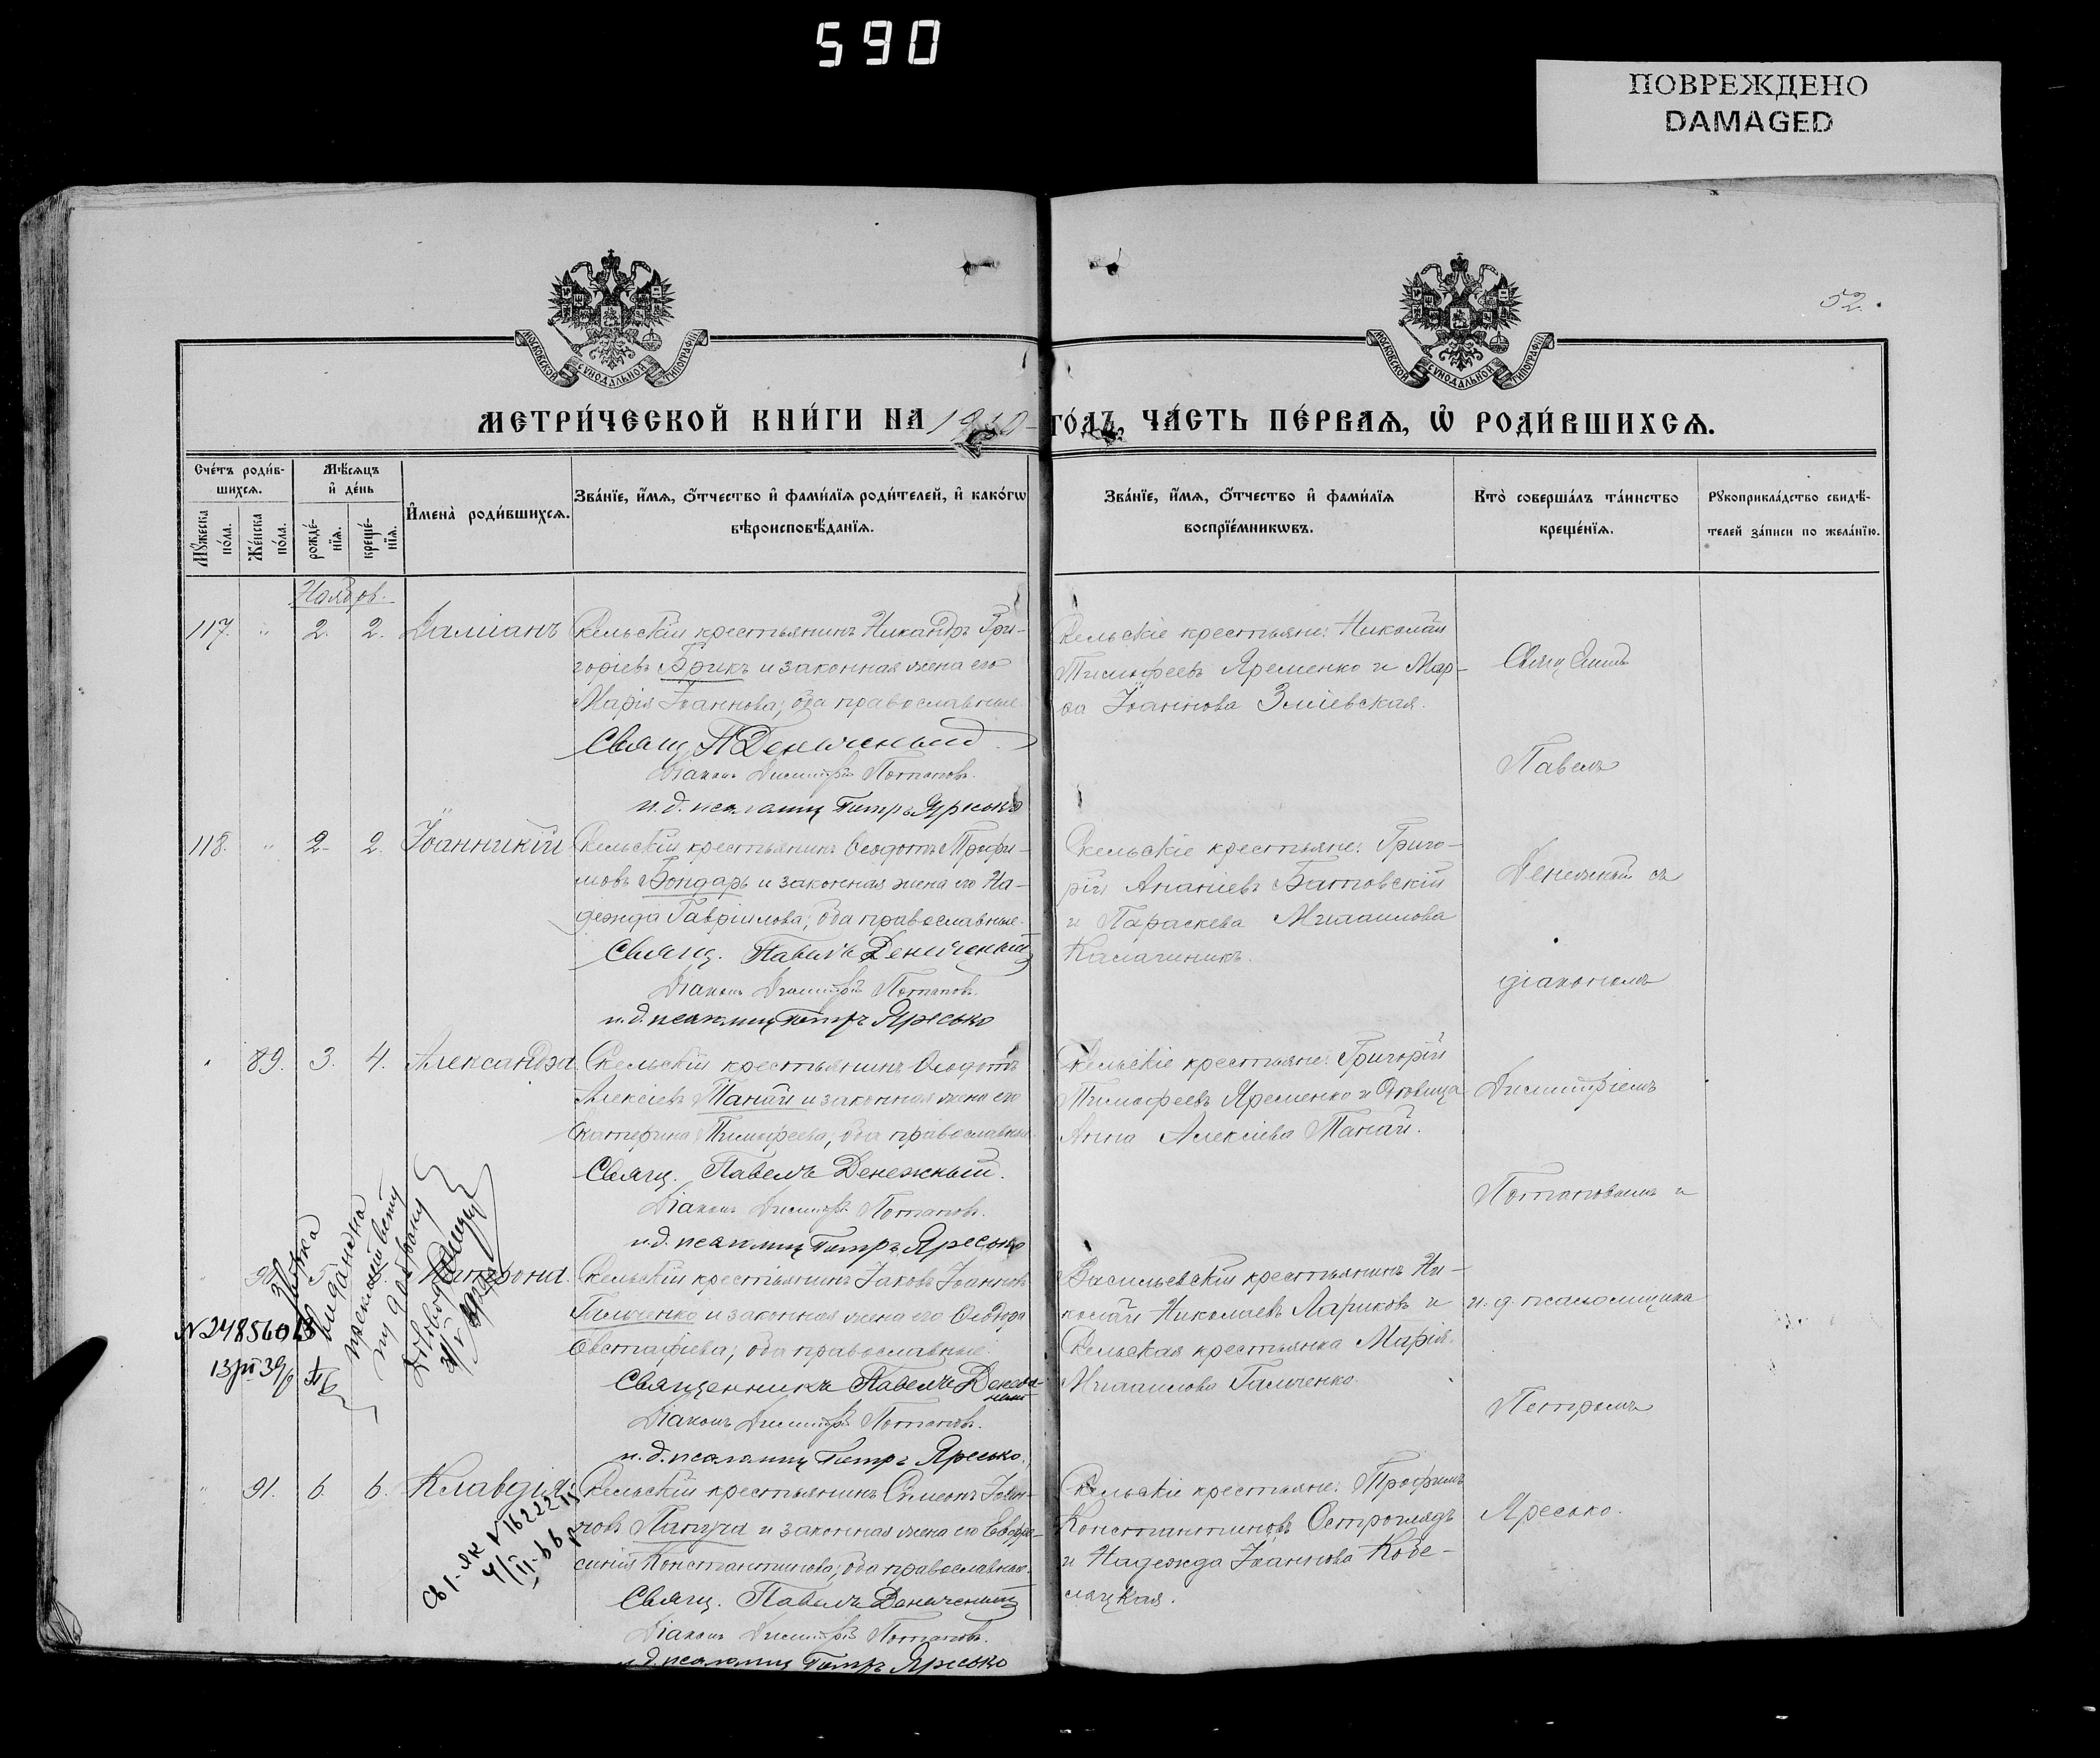 590
ПОВРЕЖДЕНО
DAMAGED
52.
МОСКОВСКОЙ СѴНОДАЛЬНОЙ ТИПОГРАФІИ
МОСКОВСКОЙ СѴНОДАЛЬНОЙ ТИПОГРАФІИ
МЕТРИ́ЧЕСКОЙ КНИ́ГИ НА 1910 ГО́ДЪ, ЧА́СТЬ ПЕ́РВАѦ, Ѡ҆ РОДИ́ВШИХСѦ.
Сче́тъ роди́в-
шихсѧ.
Мꙋ́жеска по́ла.
Же́нска по́ла.
Мѣ́сѧцъ
и҆ де́нь
рожде́-
нїѧ.
креще́-
нїѧ.
И҆мена̀ роди́вшихсѧ.
Зва́нїе, и҆́мѧ, ѻ҆́тчество и҆ фами́лїѧ роди́телей, и҆ како́гѡ
вѣроисповѣ́данїѧ.
Зва́нїе, и҆́мѧ, ѻ҆́тчество и҆ фами́лїѧ
воспрїе́мникѡвъ.
Кто̀ соверша́лъ та́инство
креще́нїѧ.
Рꙋкоприкла́дство свидѣ́-
телей за́писи по жела́нїю.
Ноябрь.
117. " 2. 2. Даміанъ
Скельскій крестьянинъ Никандръ Гри-
горіевъ Брикъ и законная жена его
Марія Іоаннова; оба православные.
Свящ. П Денежный
Діаконъ Димитрій Потаповъ.
и. д. псаломщ Петръ Яресько
Скельскіе крестьяне: Николай
Тимофеевъ Яременко и Мар-
ѳа Іоаннова Зміевская.
118. " 2. 2. Іоанникій
Скельскій крестьянинъ Ѳеодотъ Трофи-
мовъ Бондарь и законная жена его На-
дежда Гавріилова; оба православные.
Свящ. Павелъ Денежный
Діаконъ Димитрій Потаповъ.
и. д. псаломщ Петръ Яресько
Скельскіе крестьяне: Григо-
рій Ананіевъ Батовскій
и Параскева Михаилова
Калачникъ.
" 89. 3. 4. Александра
Скельскій крестьянинъ Ѳеодотъ
Алексіевъ Танай и законная жена его
Екатерина Тимофеева; оба православные.
Свящ. Павелъ Денежный.
Діаконъ Димитрій Потаповъ.
и. д. псаломщ Петръ Яресько
Скельскіе крестьяне: Григорій
Тимофеевъ Яременко и дѣвица
Анна Алексіева Танай.
" 90. 5.
Скельскій крестьянинъ Іаковъ Іоанновъ
Гильченко и законная жена его Ѳеодора
Евстафіева; оба православные.
Священникъ Павелъ Денеж-
ный
Діаконъ Димитрій Потаповъ.
и. д. псаломщ Петръ Яресько.
Васильевскій крестьянинъ Ни-
колай Николаевъ Лариковъ и
Скельская крестьянка Марія
Михаилова Гильченко.
N 248560
" 91. 6 6. Клавдія
Скельскій крестьянинъ Симеонъ Іоан-
новъ Папуча и законная жена его Евфро-
синія Константинова; оба православные.
Свящ. Павелъ Денежный
Діаконъ Димитрій Потаповъ.
и. д. псаломщ Петръ Яресько
Скельскіе крестьяне: Трофимъ
Константиновъ Остроглядъ
и Надежда Іоаннова Кобе-
ляцкая.
Павелъ
Денежный съ
діакономъ
Димитріемъ
Потаповымъ и
и. д. псаломщика
Петромъ
Яресько.